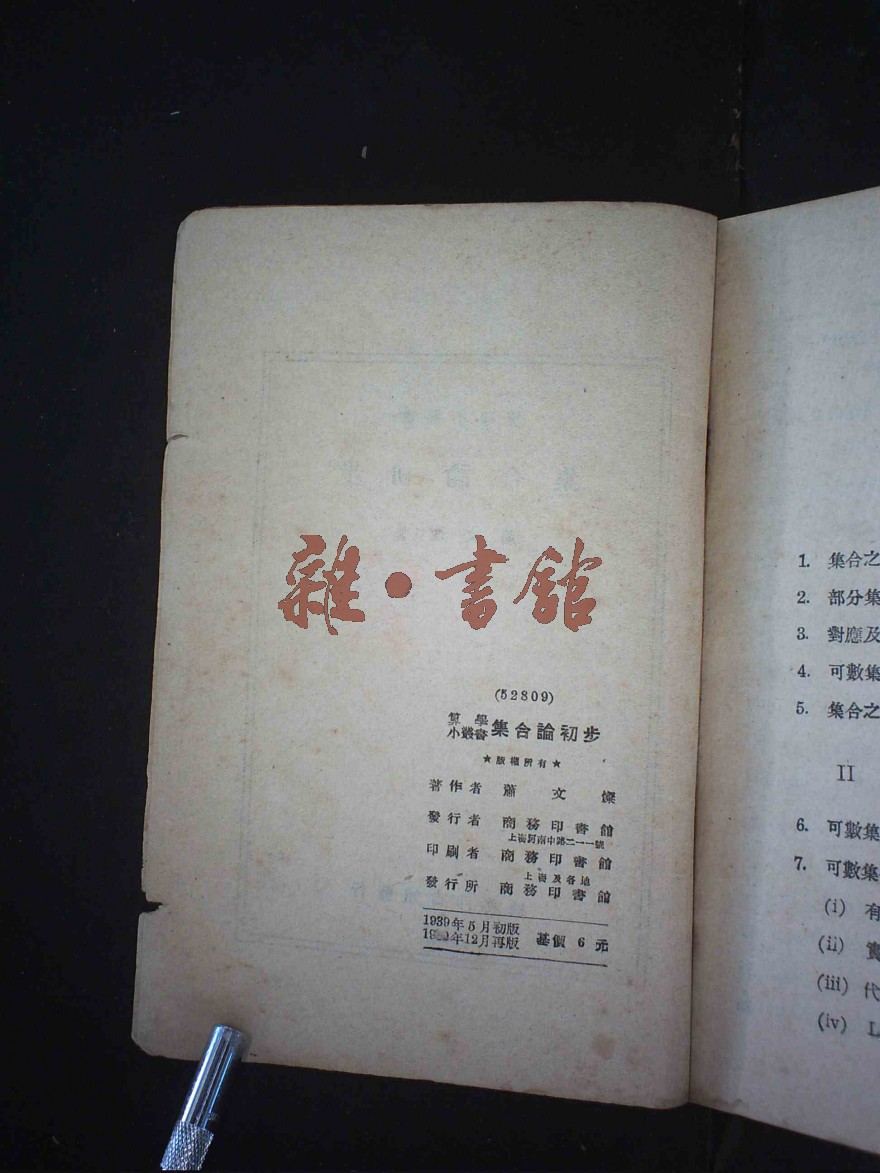 雜·書館
(52809)
算學
小叢書
集合論初步
★版權所有★
著作者 蕭文燦
發行者 商務印書館
上海河南中路二一一號
印刷者 商務印書館
上海及各地
發行所 商務印書館
1939年5月初版
年12月再版 基價 6 元
1. 集合之
2. 部分集
3. 對應及
4. 可數集
5. 集合之
II
6. 可數集
7. 可數集
(i) 有
(ii) 實
(iii) 代
(iv) L